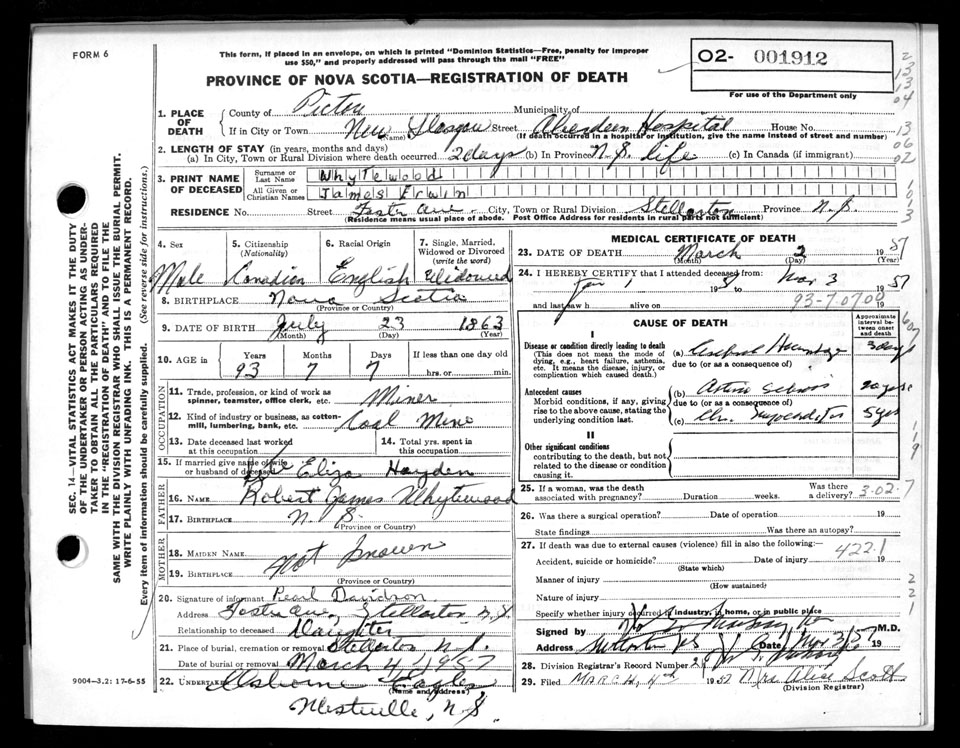 FORM 6
This form, if placed in an envelope, on which is printed "Dominion Statistics—Free, penalty for improper
use $50," and properly addressed will pass through the mail "FREE"
O2- 001912
For use of the Department only
PROVINCE OF NOVA SCOTIA—REGISTRATION OF DEATH
1. PLACE OF DEATH
County of Pictou Municipality of
If in City or Town New Glasgow Street Aberdeen Hospital House No.
(Name) (If death occurred in a hospital or institution, give the name instead of street and number)
2. LENGTH OF STAY (in years, months and days)
(a) In City, Town or Rural Division where death occurred 2 days (b) In Province N.S. life (c) In Canada (if immigrant)
3. PRINT NAME OF DECEASED
Surname or Last Name Whytewood
All Given or Christian Names James Erwin
RESIDENCE No. Street Foster Ave. City, Town or Rural Division Stellarton Province N.S.
(Residence means usual place of abode. Post Office Address for residents in rural parts not sufficient)
4. Sex Male
5. Citizenship (Nationality) Canadian
6. Racial Origin English
7. Single, Married, Widowed or Divorced (write the word) Widowed
8. BIRTHPLACE Nova Scotia
(Province or Country)
9. DATE OF BIRTH July 23 1863
(Month) (Day) (Year)
10. AGE in Years Months Days If less than one day old
93 7 7 hrs. or min.
OCCUPATION
11. Trade, profession, or kind of work as spinner, teamster, office clerk, etc. Miner
12. Kind of industry or business, as cotton-mill, lumbering, bank, etc. Coal Mine
13. Date deceased last worked at this occupation
14. Total yrs. spent in this occupation
15. If married give name of wife or husband of deceased Eliza Hayden
FATHER
16. NAME Robert James Whytewood
17. BIRTHPLACE N.S.
(Province or Country)
MOTHER
18. MAIDEN NAME Not Known
19. BIRTHPLACE
(Province or Country)
20. Signature of informant Pearl Davidson
Address Foster Ave, Stellarton N.S.
Relationship to deceased Daughter
21. Place of burial, cremation or removal Stellarton, N.S.
Date of burial or removal March 4 1957
22. UNDERTAKER Osborne
(Name and address)
Westville, N.S.
MEDICAL CERTIFICATE OF DEATH
23. DATE OF DEATH March 2 1957
(Month) (Day) (Year)
24. I HEREBY CERTIFY that I attended deceased from
Jan 1 19 to Mar 3 1957
and last saw h alive on 19
93-7.07.00
CAUSE OF DEATH
Approximate interval between onset and death
I
Disease or condition directly leading to death
(This does not mean the mode of dying, e.g., heart failure, asthenia, etc. It means the disease, injury, or complication which caused death.)
(a) Cerebral 3 days
due to (or as a consequence of)
Antecedent causes
Morbid conditions, if any, giving rise to the above cause, stating the underlying condition last.
(b) 20 years
due to (or as a consequence of)
(c) Chr. Myocarditis 5 yrs
II
Other significant conditions
contributing to the death, but not related to the disease or condition causing it.
25. If a woman, was the death associated with pregnancy? Duration weeks. Was there a delivery?
3-02.7
26. Was there a surgical operation? Date of operation 19
State findings Was there an autopsy?
27. If death was due to external causes (violence) fill in also the following:—
422.1
Accident, suicide or homicide? Date of injury 19
(State which)
Manner of injury
(How sustained)
Nature of injury
Specify whether injury occurred in industry, in home, or in public place
Signed by M.D.
Address Date Mar 3/57 19
28. Division Registrar's Record Number
29. Filed MARCH, 4th 1957 Mrs. Alice Scott
(Division Registrar)
SEC. 14—VITAL STATISTICS ACT MAKES IT THE DUTY
OF THE UNDERTAKER OR PERSON ACTING AS UNDER-
TAKER TO OBTAIN ALL THE PARTICULARS REQUIRED
IN THE "REGISTRATION OF DEATH" AND TO FILE THE
SAME WITH THE DIVISION REGISTRAR WHO SHALL ISSUE THE BURIAL PERMIT.
WRITE PLAINLY WITH UNFADING INK. THIS IS A PERMANENT RECORD.
Every item of information should be carefully supplied. (See reverse side for instructions.)
9004-3.2: 17-6-55